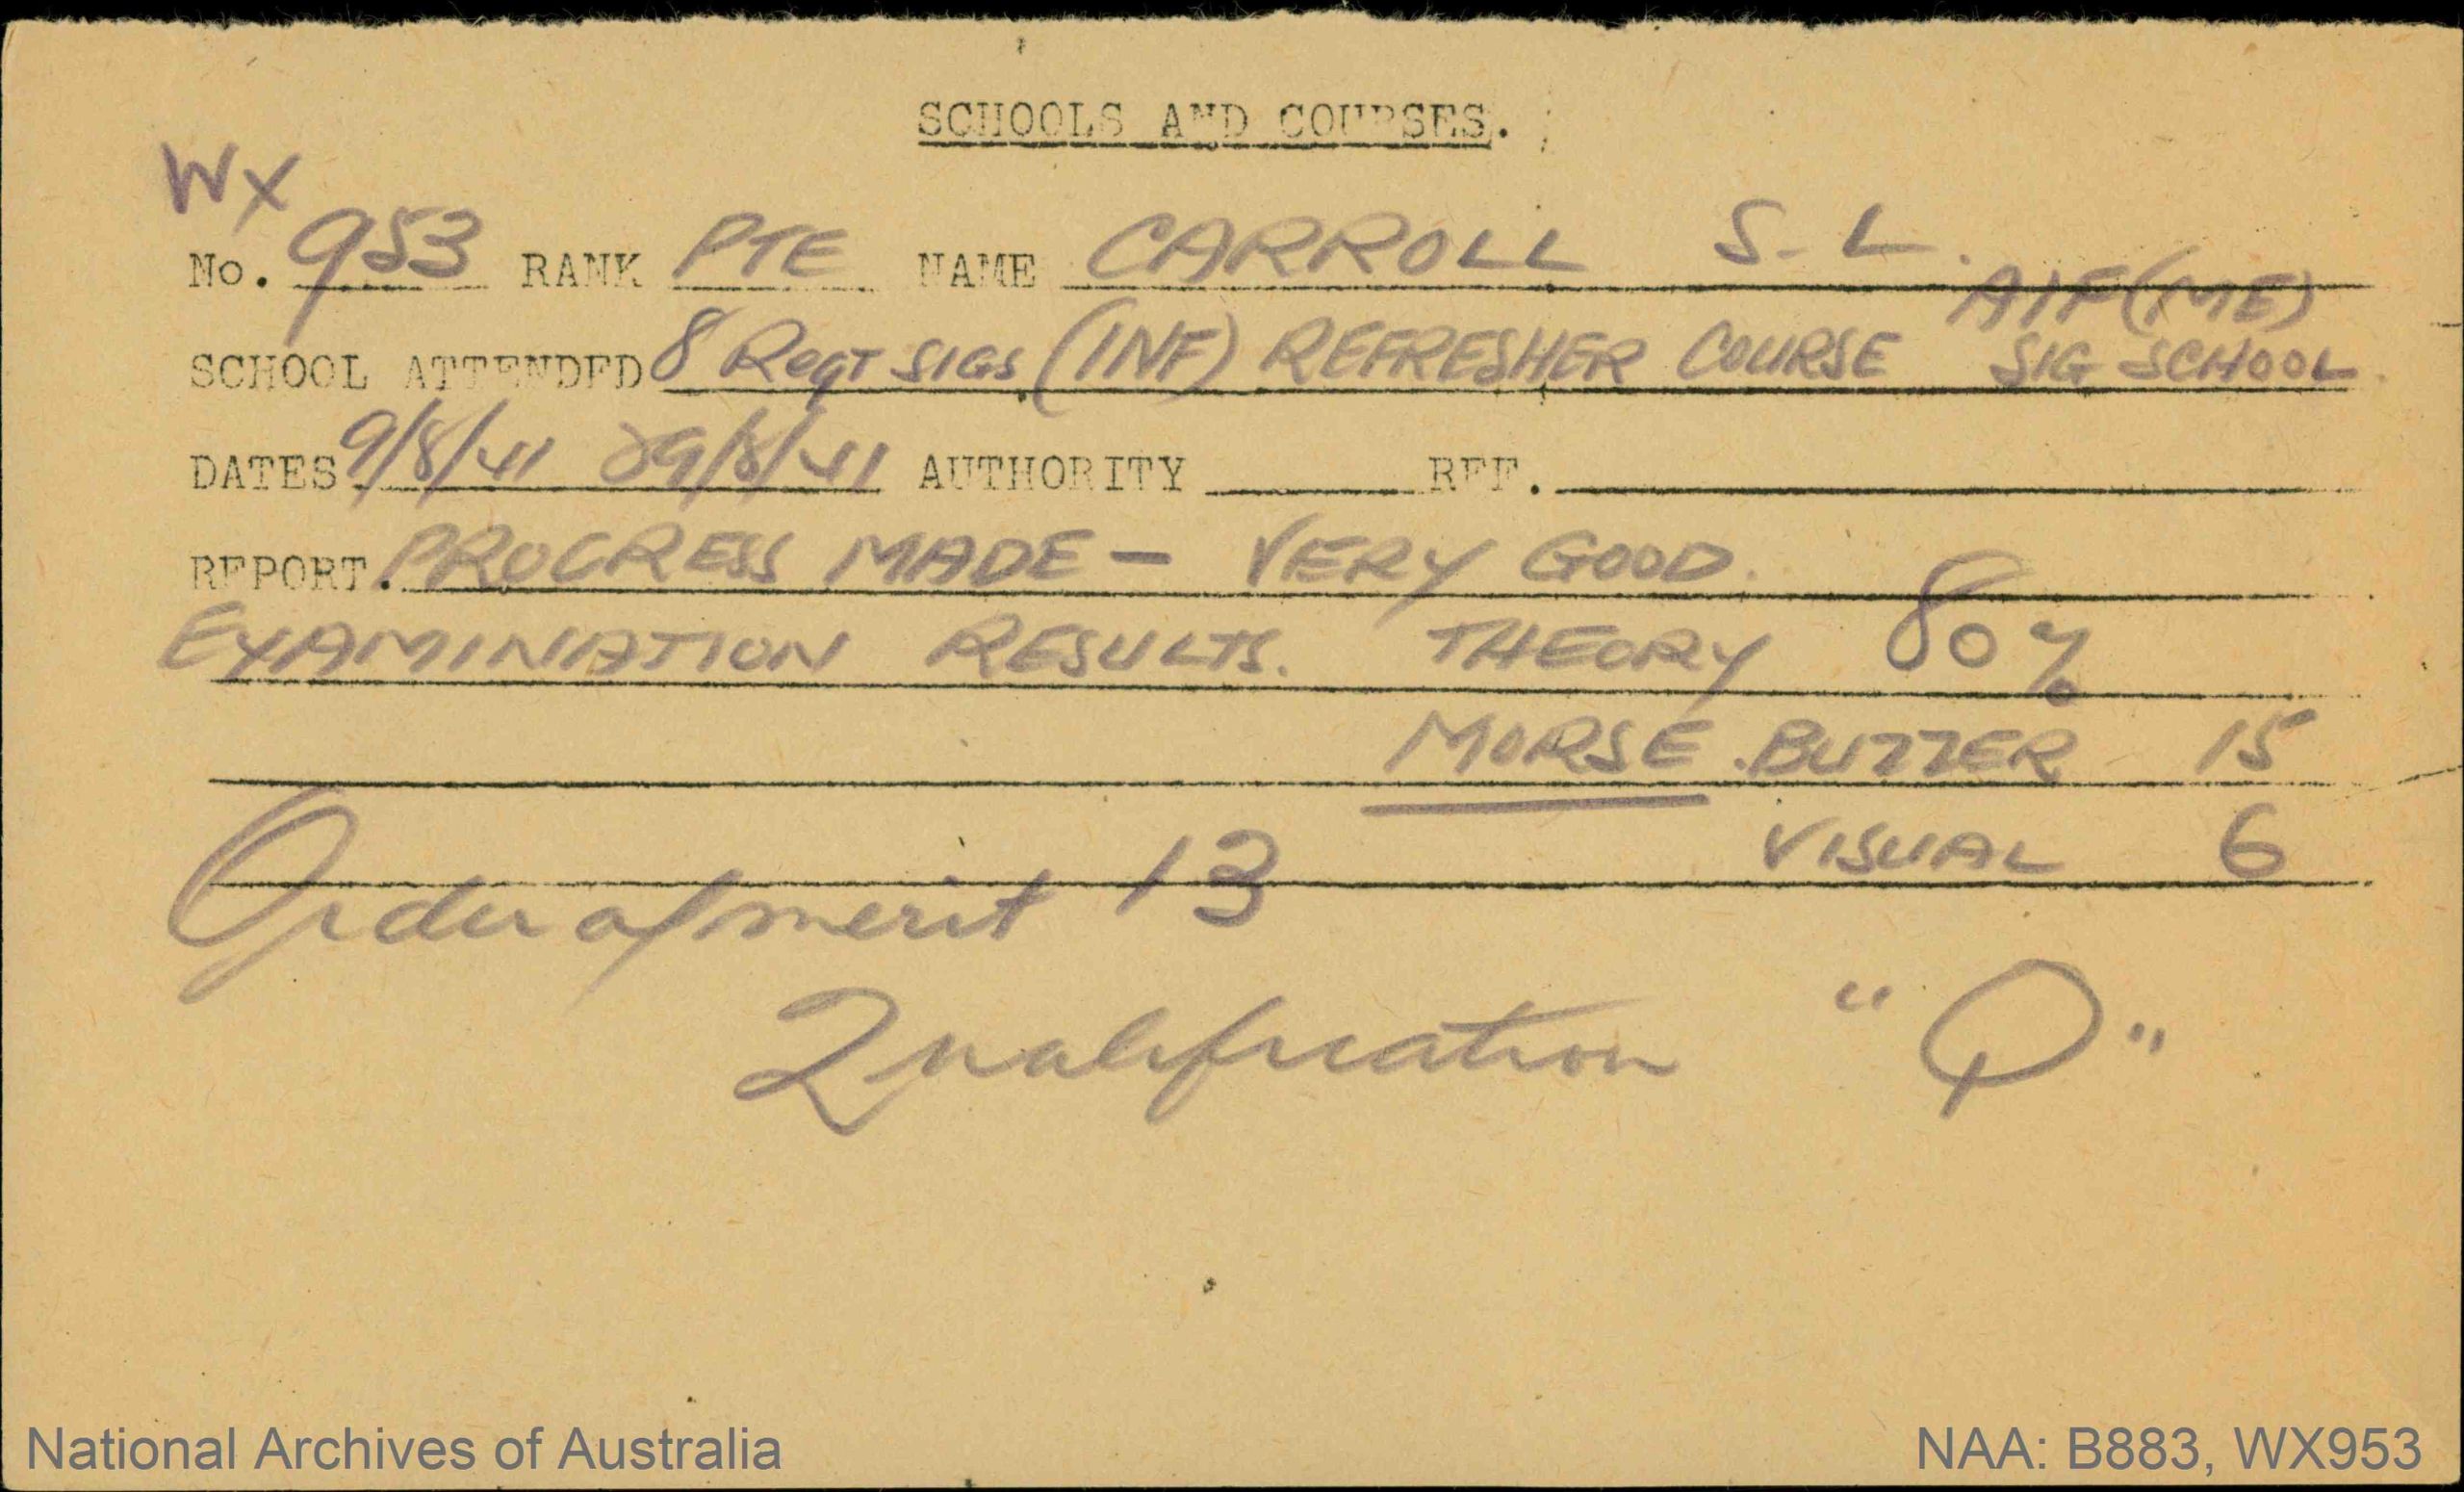 SCHOOLS AND COURSES.
WX
No. 953 RANK PTE NAME CARROLL S. L.
AIF (ME)
SCHOOL ATTENDED 8 Regt SIGS (INF) REFRESHER COURSE SIG SCHOOL
DATES 9/8/41 29/8/41 AUTHORITY REF.
REPORT. PROGRESS MADE — VERY GOOD.
EXAMINATION RESULTS. THEORY 80%
MORSE. BUZZER 15
VISUAL 6
Order of merit 13
Qualification "Q"
National Archives of Australia NAA: B883, WX953